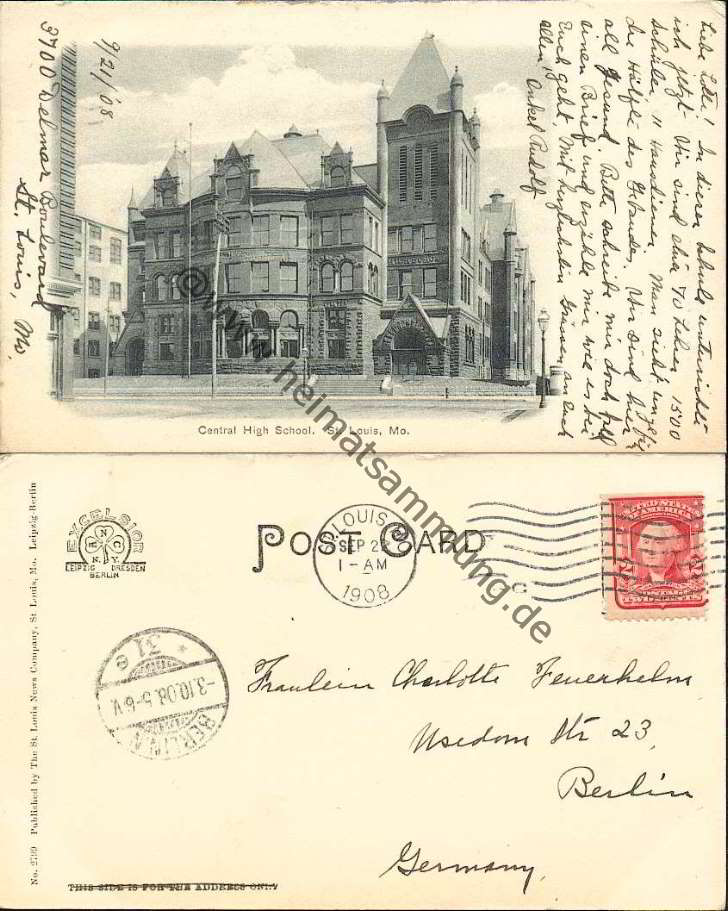 9/21/08
3700 Delmar Boulevard
St. Louis, Mo.
Liebe Lotte! In dieser Schule unterrichte
ich jetzt. Wir sind etwa 70 Lehrer 1500
Schüler, 11 Hausdiener. Man sieht ungefähr
die Hälfte des Gebäudes. Wir sind hier
all gesund. Bitte schreibe mir doch bald
einen Brief und erzähle mir, wie es bei
Euch geht. Mit herzlichen Grüssen an Euch
allen! Onkel Rudolf
HIGH SCHOOL
Central High School. St. Louis, Mo.
© www.heimatsammlung.de
No. 2799 Published by The St. Louis News Company, St. Louis, Mo. Leipzig-Berlin
EXCELSIOR
N
N.Y.
LEIPZIG DRESDEN
BERLIN
POST CARD
ST. LOUIS
SEP 2
1-AM
1908
31e
-3.10.08.5-6V.
BERLIN
Fräulein Charlotte Feuerhelm
Usedom Str 23,
Berlin
Germany.
THIS SIDE IS FOR THE ADDRESS ONLY